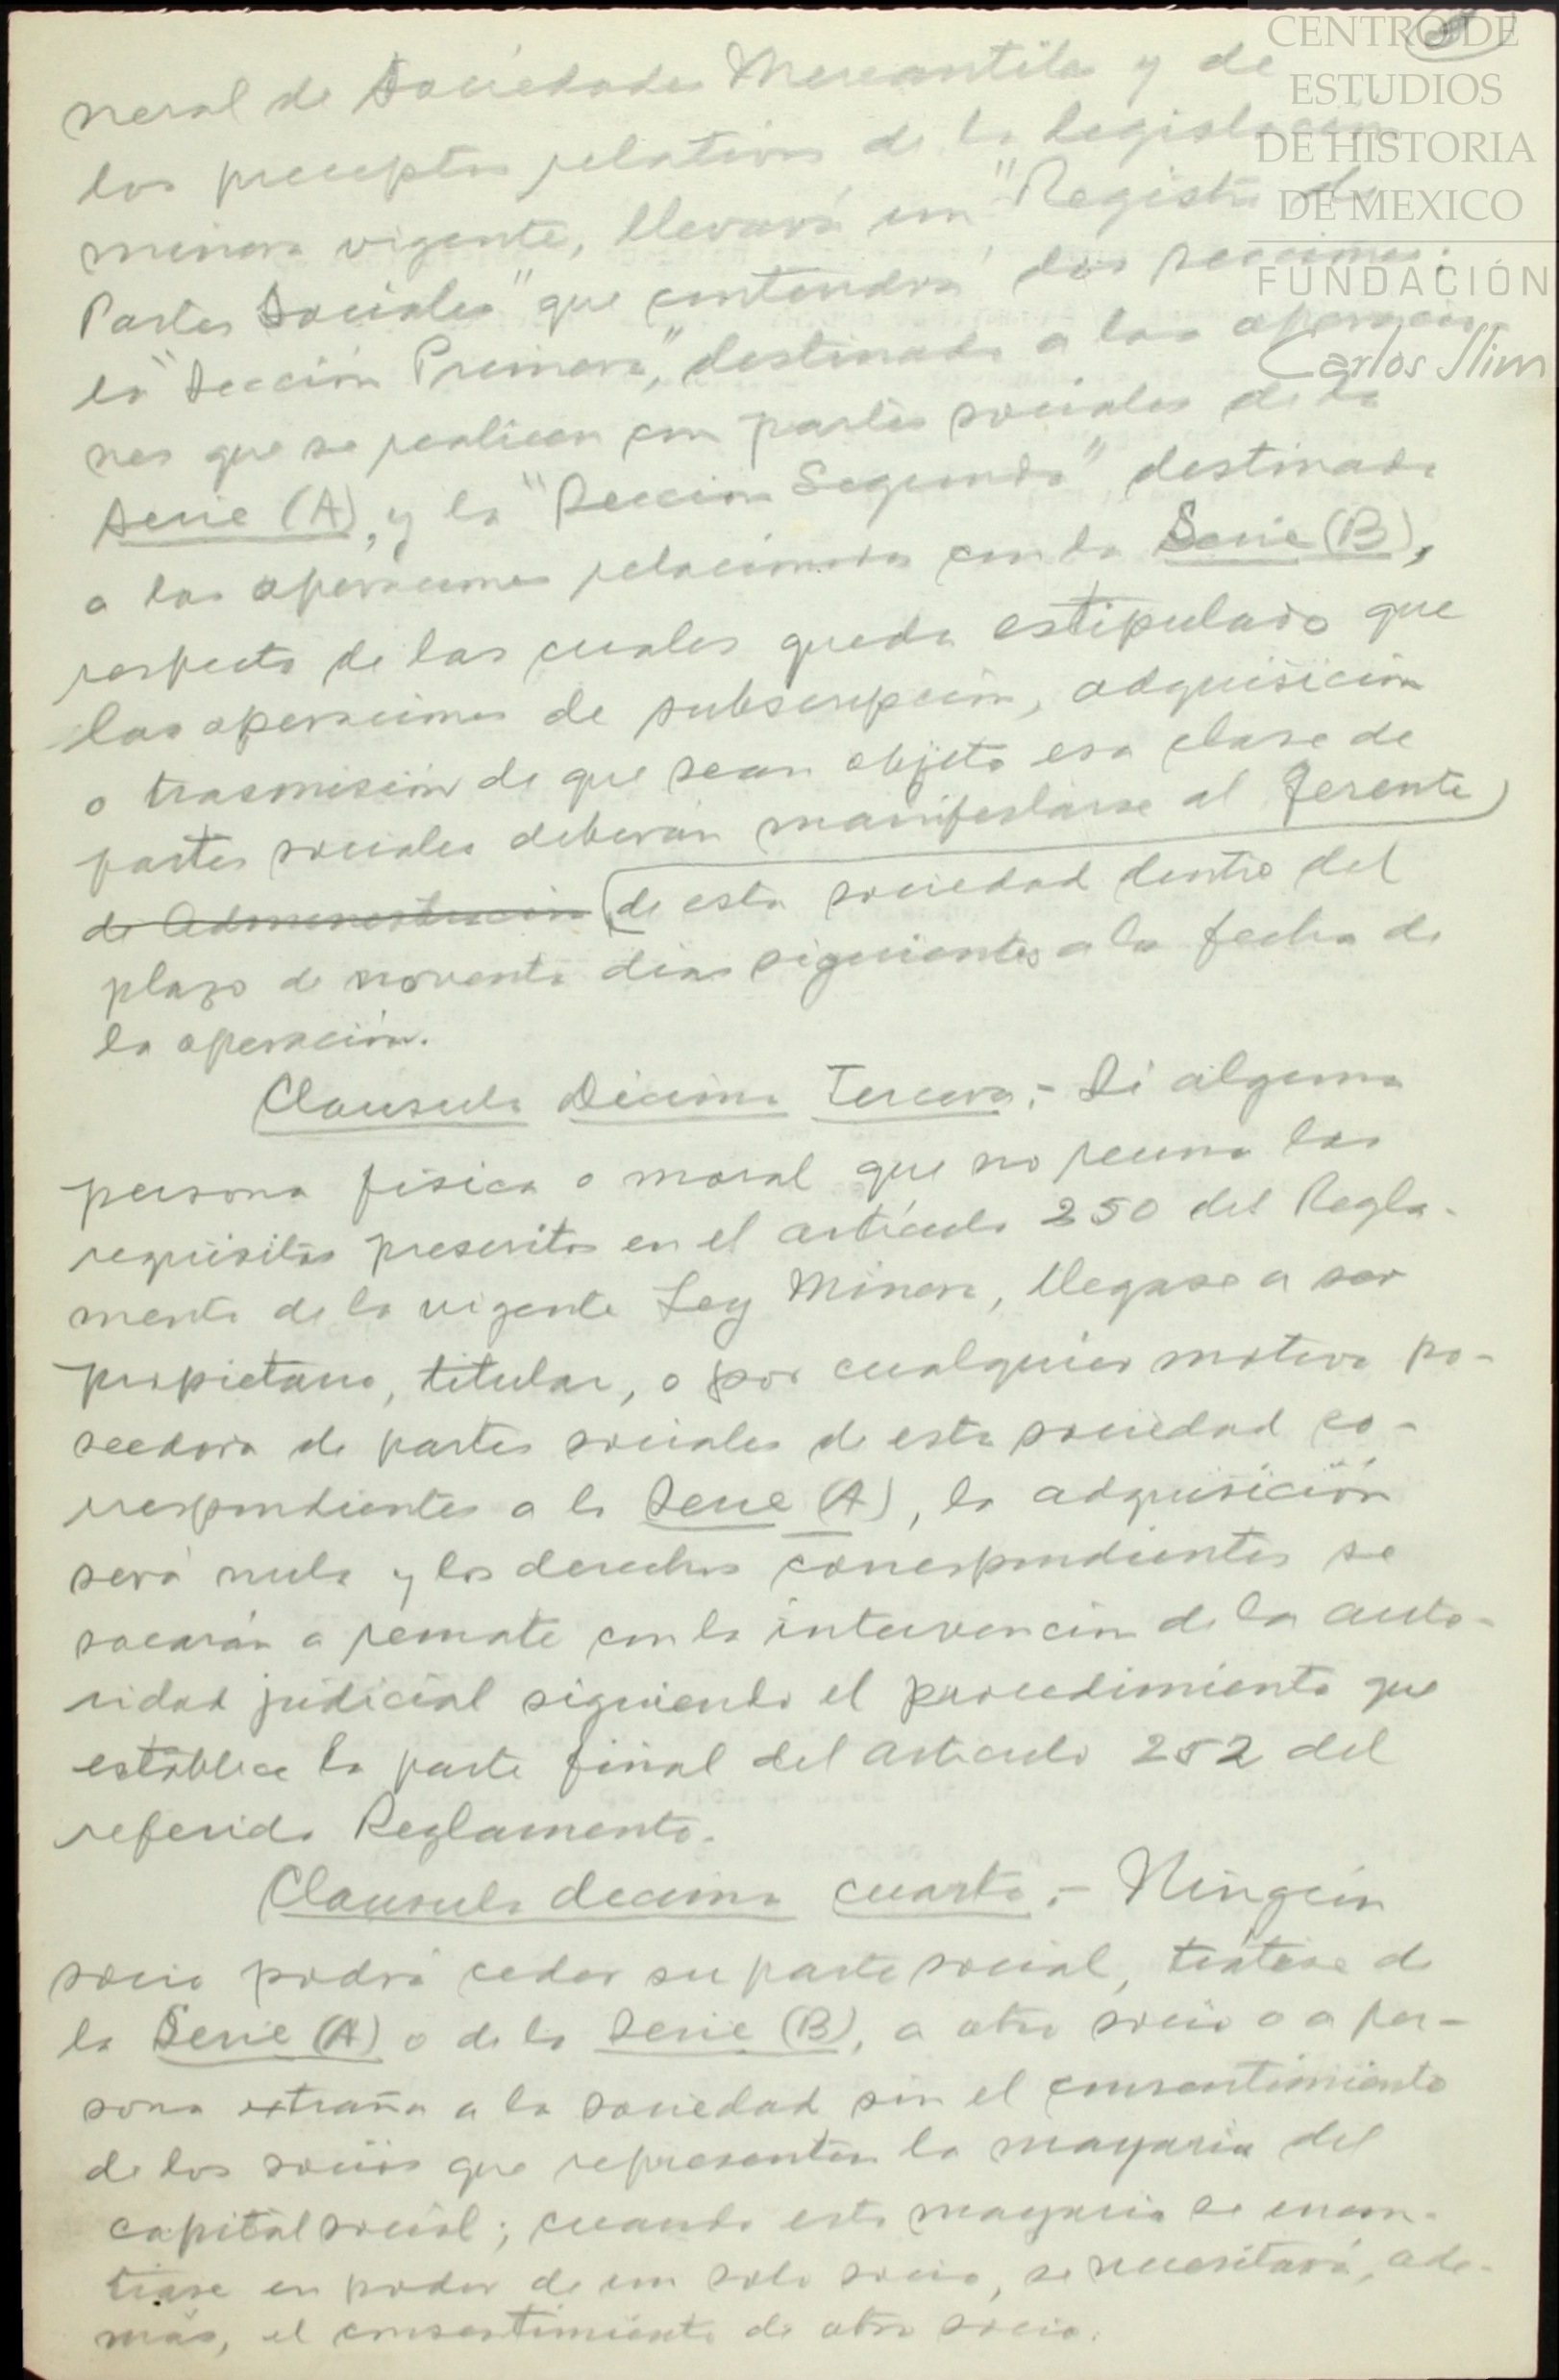 CENTRO DE
ESTUDIOS
DE HISTORIA
DE MEXICO
FUNDACIÓN
Carlos Slim
neral de Sociedades Mercantiles y de
los preceptos relativos de la legislación
minera vigente, llevará un "Registro de
Partes Sociales" que contendrá dos secciones:
la "Sección Primera", destinada a las operacio-
nes que se realicen con partes sociales de la
Serie (A), y la "Sección Segunda" destinada
a las operaciones relacionadas con la Serie (B),
respecto de las cuales queda estipulado que
las operaciones de subscripción, adquisición
o trasmisión de que sean objeto esa clase de
partes sociales deberán manifestarse al Gerente
de Administración de esta sociedad dentro del
plazo de noventa días siguientes a la fecha de
la operación.
Clausula Décima Tercera.- Si alguna
persona física o moral que no reuna los
requisitos prescritos en el artículo 250 del Regla-
mento de la vigente Ley Minera, llegase a ser
propietario, titular, o por cualquier motivo po-
seedora de partes sociales de esta sociedad co-
rrespondientes a la Serie (A), la adquisición
será nula y los derechos correspondientes se
sacarán a remate con la intervención de la auto-
ridad judicial siguiendo el procedimiento que
establece la parte final del articulo 252 del
referido Reglamento.
Clausula decima cuarta.- Ningún
socio podrá ceder su parte social, trátese de
la Serie (A) o de la Serie (B), a otro socio o a per-
sona extraña a la sociedad sin el consentimiento
de los socios que representen la mayoria del
capital social; cuando esta mayoria se encon-
trase en poder de un solo socio, se necesitará, ade-
más, el consentimiento de otro socio.